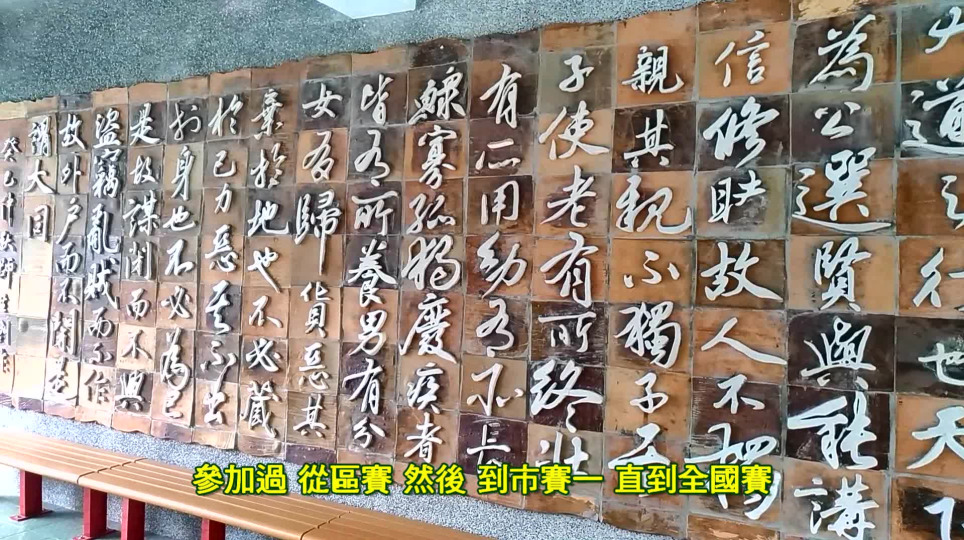 大道之行也天下
為公選賢與能講
信修睦故人不獨
親其親不獨子其
子使老有所終壯
有所用幼有所長
鰥寡孤獨廢疾者
皆有所養男有分
女有歸貨惡其
棄於地也不必藏
於己力惡其不出
於身也不必為己
是故謀閉而不興
盜竊亂賊而不作
故外戶而不閉是
謂大同
參加過 從區賽 然後 到市賽一 直到全國賽